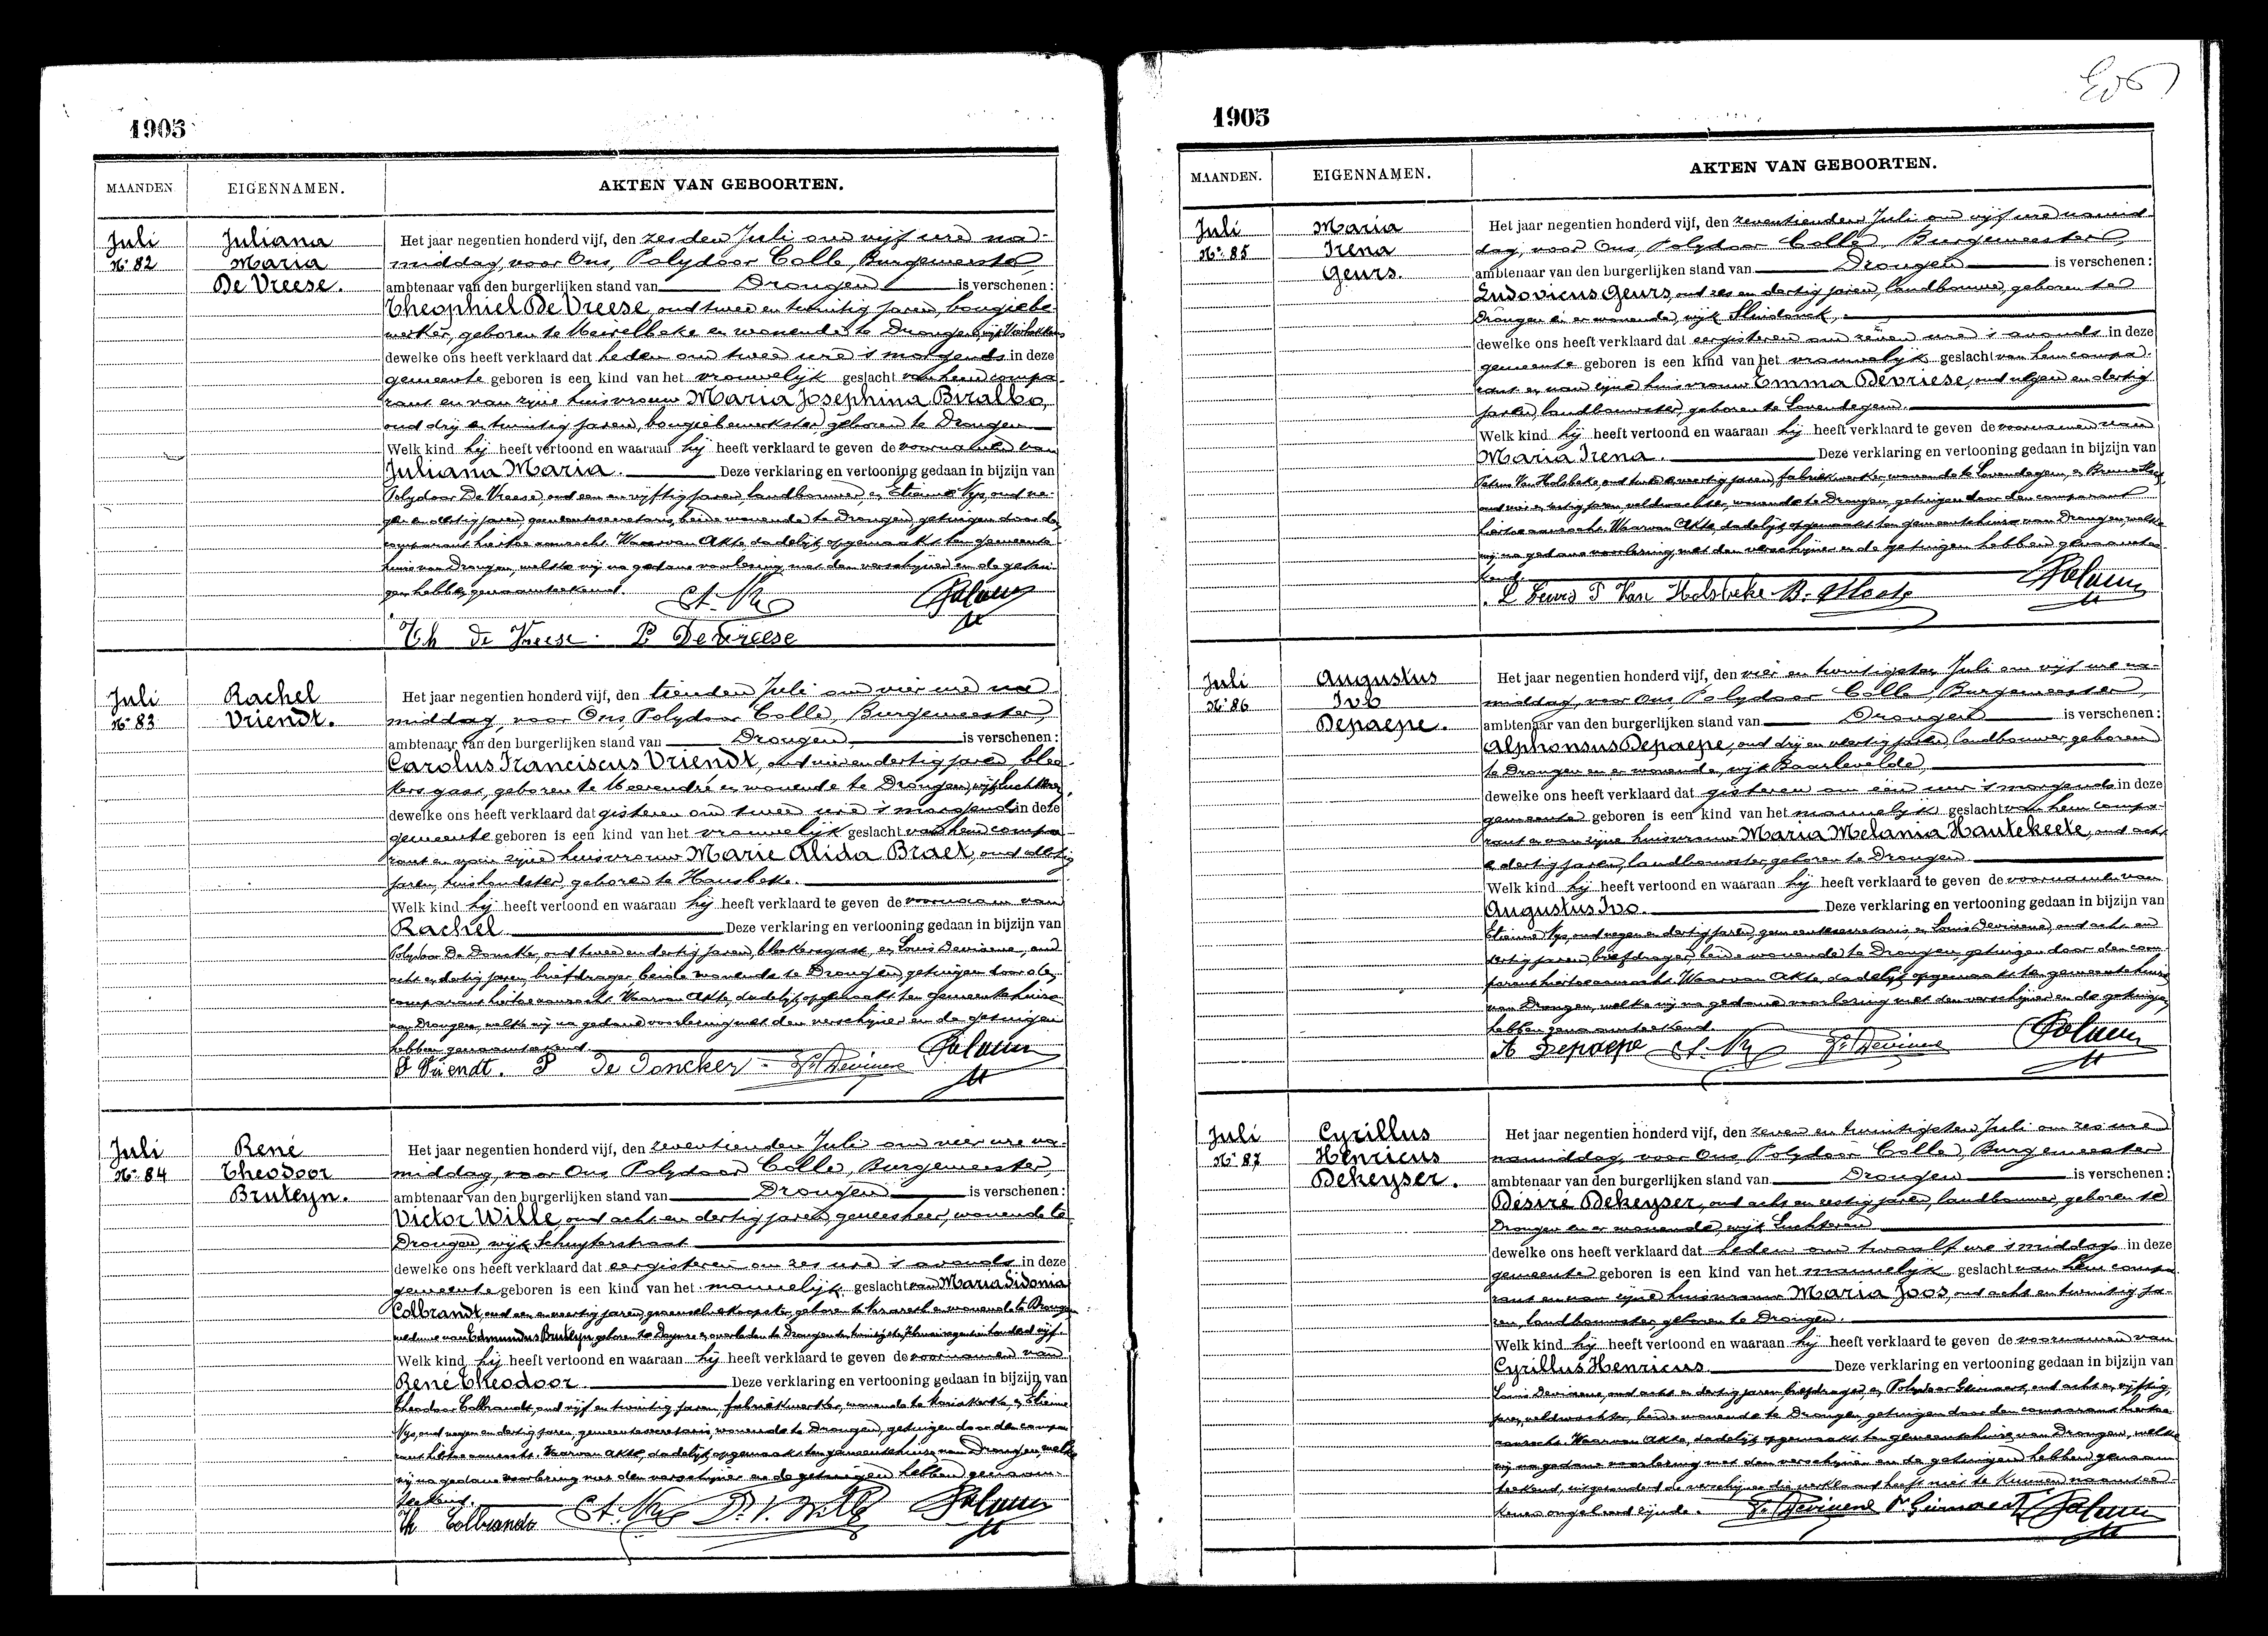 1905
MAANDEN. EIGENNAMEN. AKTEN VAN GEBOORTEN.
Juli
Nr 82
Juliana
Maria
De Vreese.
Het jaar negentien honderd vijf, den zesden Juli om vijf ure na-
middag, voor Ons, Polydoor Colle, Burgemeester,
ambtenaar van den burgerlijken stand van Drongen is verschenen:
Theophiel De Vreese, oud twee en twintig jaren, bougiebe-
werker, geboren te Meirelbeke en wonende te Drongen, wijk
dewelke ons heeft verklaard dat heden om twee ure 's morgends in deze
gemeente geboren is een kind van het vrouwelijk geslacht van hem compa-
rant en van zijne huisvrouw Maria Josephina Biralbo,
oud drij en twintig jaren, bougiebewerkster, geboren te Drongen
Welk kind hij heeft vertoond en waaraan hij heeft verklaard te geven de voornamen van
Juliana Maria. Deze verklaring en vertooning gedaan in bijzijn van
Polydoor De Vreese, oud een en vijftig jaren, landbouwer, en Etienne Nys, oud ne-
gen en dertig jaren, gemeentesecretaris, beide wonende te Drongen, getuigen door de
comparant hiertoe aanzocht. Waarvan Akte, dadelijk opgemaakt ten gemeente-
huize van Drongen, welke wij na gedane voorlezing met den verschijner en de getui-
gen hebben genaamteekend.
Th De Vreese. P De Vreese
Juli
Nr 83
Rachel
Vriendt.
Het jaar negentien honderd vijf, den tienden Juli om vier ure na-
middag, voor Ons Polydoor Colle, Burgemeester,
ambtenaar van den burgerlijken stand van Drongen, is verschenen:
Carolus Franciscus Vriendt, oud vier en dertig jaren, blee-
kersgast, geboren te Meerendré en wonende te Drongen, wijk Luchteren,
dewelke ons heeft verklaard dat gisteren om twee ure 's morgends in deze
gemeente geboren is een kind van het vrouwelijk geslacht van hem compa-
rant en van zijne huisvrouw Marie Alida Braet, oud
jaren, huishoudster, geboren te Hansbeke.
Welk kind hij heeft vertoond en waaraan hij heeft verklaard te geven de voornaam van
Rachel Deze verklaring en vertooning gedaan in bijzijn van
Polydoor De Doncker, oud twee en dertig jaren, bleekersgast, en Louis Devisene, oud
acht en dertig jaren, briefdrager, beide wonende te Drongen, getuigen door de
comparant hiertoe aanzocht. Waarvan Akte, dadelijk opgemaakt ten gemeentehuize
van Drongen, welke wij na gedane voorlezing met den verschijner en de getuigen
hebben genaamteekend.
Vriendt. P De Doncker
Juli
Nr 84
René
Theodoor
Bruteyn.
Het jaar negentien honderd vijf, den zeventienden Juli om vier ure na-
middag, voor Ons Polydoor Colle, Burgemeester,
ambtenaar van den burgerlijken stand van Drongen is verschenen:
Victor Wille, oud acht en dertig jaren, geneesheer, wonende te
Drongen, wijk Schuyterstraat
dewelke ons heeft verklaard dat eergisteren om zes ure 's avonds in deze
gemeente geboren is een kind van het mannelijk geslacht van Maria Sidonia
Colbrandt, oud een en veertig jaren, geboren te en wonende te Drongen
weduwe van Edmundus Bruteyn, geboren te Deynze en overleden te Drongen den twintigsten Februari negentien honderd vijf.
Welk kind hij heeft vertoond en waaraan hij heeft verklaard te geven de voornamen van
René Theodoor Deze verklaring en vertooning gedaan in bijzijn van
Theodoor Colbrandt, oud vijf en twintig jaren, fabriekwerker, wonende te Mariakerke, en Etienne
Nys, oud negen en dertig jaren, gemeentesecretaris, wonende te Drongen, getuigen door den compa-
rant hiertoe aanzocht. Waarvan Akte, dadelijk opgemaakt ten gemeentehuize van Drongen, welke
wij na gedane voorlezing met den verschijner en de getuigen hebben genaam-
teekend.
Th Colbrandt Dr V. Wille
1905
MAANDEN. EIGENNAMEN. AKTEN VAN GEBOORTEN.
Juli
Nr 85
Maria
Irena
Geurs.
Het jaar negentien honderd vijf, den zeventienden Juli om vijf ure namid-
dag, voor Ons, Polydoor Colle, Burgemeester,
ambtenaar van den burgerlijken stand van Drongen is verschenen:
Ludovicus Geurs, oud zes en dertig jaren, landbouwer, geboren te
Drongen en er wonende, wijk
dewelke ons heeft verklaard dat eergisteren om zeven ure 's avonds in deze
gemeente geboren is een kind van het vrouwelijk geslacht van hem compa-
rant en van zijne huisvrouw Emma Devriese, oud negen en dertig
jaren, landbouwster, geboren te Lovendegem.
Welk kind hij heeft vertoond en waaraan hij heeft verklaard te geven de voornamen van
Maria Irena. Deze verklaring en vertooning gedaan in bijzijn van
Petrus Van Holsbeke, oud en veertig jaren, fabriekwerker, wonende te Lovendegem, en Bruno
oud en dertig jaren, veldwachter, wonende te Drongen, getuigen door den comparant
hiertoe aanzocht. Waarvan Akte, dadelijk opgemaakt ten gemeentehuize van Drongen, welke
wij na gedane voorlezing met den verschijner en de getuigen hebben genaamtee-
kend.
L Geurs P Van Holsbeke B.
Juli
Nr 86
Augustus
Ivo
Depaepe.
Het jaar negentien honderd vijf, den vier en twintigsten Juli om vijf ure na-
middag, voor Ons, Polydoor Colle, Burgemeester,
ambtenaar van den burgerlijken stand van Drongen is verschenen:
Alphonsus Depaepe, oud drij en veertig jaren, landbouwer, geboren
te Drongen en er wonende, wijk Baarlevelde,
dewelke ons heeft verklaard dat gisteren om een uur 's morgends in deze
gemeente geboren is een kind van het mannelijk geslacht van hem compa-
rant en van zijne huisvrouw Maria Melania Hautekeete, oud acht
en dertig jaren, landbouwster, geboren te Drongen
Welk kind hij heeft vertoond en waaraan hij heeft verklaard te geven de voornamen van
Augustus Ivo. Deze verklaring en vertooning gedaan in bijzijn van
Etienne Nys, oud negen en dertig jaren, gemeentesecretaris en Louis Devisene, oud acht en
dertig jaren, briefdrager, beide wonende te Drongen, getuigen door den com-
parant hiertoe aanzocht. Waarvan Akte, dadelijk opgemaakt ten gemeentehuize
van Drongen, welke wij na gedane voorlezing met den verschijner en de getuigen
hebben genaamteekend.
A Depaepe
Juli
Nr 87
Cyrillus
Henricus
Dekeyser.
Het jaar negentien honderd vijf, den zeven en twintigsten Juli om zes ure
namiddag, voor Ons, Polydoor Colle, Burgemeester
ambtenaar van den burgerlijken stand van Drongen is verschenen:
Desiré Dekeyser, oud acht en zestig jaren, landbouwer, geboren te
Drongen en er wonende, wijk Luchteren
dewelke ons heeft verklaard dat heden om twaalf ure 's middags in deze
gemeente geboren is een kind van het mannelijk geslacht van hem compa-
rant en van zijne huisvrouw Maria Joos, oud acht en twintig ja-
ren, landbouwster, geboren te Drongen.
Welk kind hij heeft vertoond en waaraan hij heeft verklaard te geven de voornamen van
Cyrillus Henricus Deze verklaring en vertooning gedaan in bijzijn van
Louis Devisene, oud acht en dertig jaren, briefdrager, en Polydoor oud acht en vijftig
jaren, veldwachter, beide wonende te Drongen, getuigen door den comparant hiertoe
aanzocht. Waarvan Akte, dadelijk opgemaakt ten gemeentehuize van Drongen, welke
wij na gedane voorlezing met den verschijner en de getuigen hebben genaam-
teekend, uitgezonderd de verschijner die verklaard heeft niet te kunnen naamtee-
kenen ongeleerd zijnde.